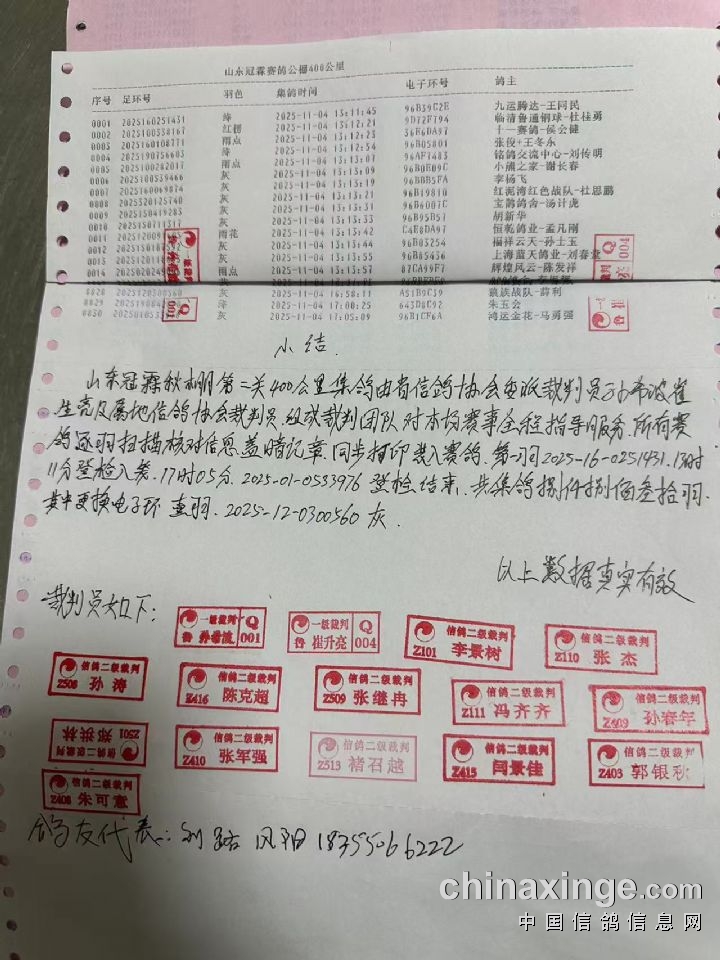 山东冠霖赛鸽公棚400公里
序号 足环号 羽色 集鸽时间 电子环号 鸽主
0001 2025160251431 绛 2025-11-04 13:11:45 96B39C2E 九运腾达-王同民
0002 2025100338167 红楞 2025-11-04 13:12:21 9D72F794 临清鲁通钢球-杜桂勇
0003 2025160108771 雨点 2025-11-04 13:12:23 36E6DA97 十一赛鸽-侯会健
0004 2025190756603 绛 2025-11-04 13:12:54 96B05801 张俊+王冬东
0005 雨点 2025-11-04 13:13:07 96AF7483 铭鸽交流中心-刘传明
0006 2025100539466 灰 2025-11-04 13:13:09 96B0E09C 小熊之家-谢长春
0007 2025160069874 灰 2025-11-04 13:13:19 96B0B5FA 李杨飞
0008 2025320125740 灰 2025-11-04 13:13:21 96B19810 红泥湾红色战队-杜恩鹏
0009 2025150419283 灰 2025-11-04 13:13:31 96B6007C 宝鹊鸽舍-汤计虎
0010 灰 2025-11-04 13:13:33 96B95B51 胡新华
0011 雨花 2025-11-04 13:13:42 C4E8DA97 恒乾鸽业-孟凡刚
0012 灰 2025-11-04 13:13:44 96B03254 福祥云天-孙士玉
0013 灰 2025-11-04 13:13:55 96B85436 上海蓝天鸽业-刘春堂
0014 雨点 2025-11-04 13:13:57 87CA99F7 辉煌风云-陈发祥
灰 2025-11-04 16:58:11 A51B9C39 巅族战队-薛利
0829 绛 2025-11-04 17:00:25 643D8C92 朱玉会
0830 灰 2025-11-04 17:05:09 96B1CF6A 鸿运金花-马勇强
小结.
山东冠霖秋棚第二关400公里集鸽由省信鸽协会委派裁判员孙希波崔
生亮及属地信鸽协会裁判员.组成裁判团队对本场赛事全程指导服务.所有赛
鸽逐羽扫描核对信息盖暗记章.同步打印装入赛鸽.第一羽2025-16-0251431.13时
11分登检入赛.17时05分.2025-01-0533976登检结束.共集鸽捌仟捌佰叁拾羽.
其中更换电子环壹羽.2025-12-0300560灰.
以上数据真实有效
裁判员如下:
一级裁判 Q 鲁 001
一级裁判 Q 鲁 崔升亮 004
信鸽二级裁判 Z101 李景树
信鸽二级裁判 Z110 张杰
信鸽二级裁判 Z506 孙涛
信鸽二级裁判 Z416 陈克超
信鸽二级裁判 Z509 张继冉
信鸽二级裁判 Z111 冯齐齐
信鸽二级裁判 Z409 孙春年
信鸽二级裁判 Z501 郑洪林
信鸽二级裁判 Z410 张军强
信鸽二级裁判 Z513 褚召越
信鸽二级裁判 Z415 闫景佳
信鸽二级裁判 Z403 郭银秋
信鸽二级裁判 Z408 朱可意
鸽友代表: 刘 18355066222
chinaxinge.com
中国信鸽信息网